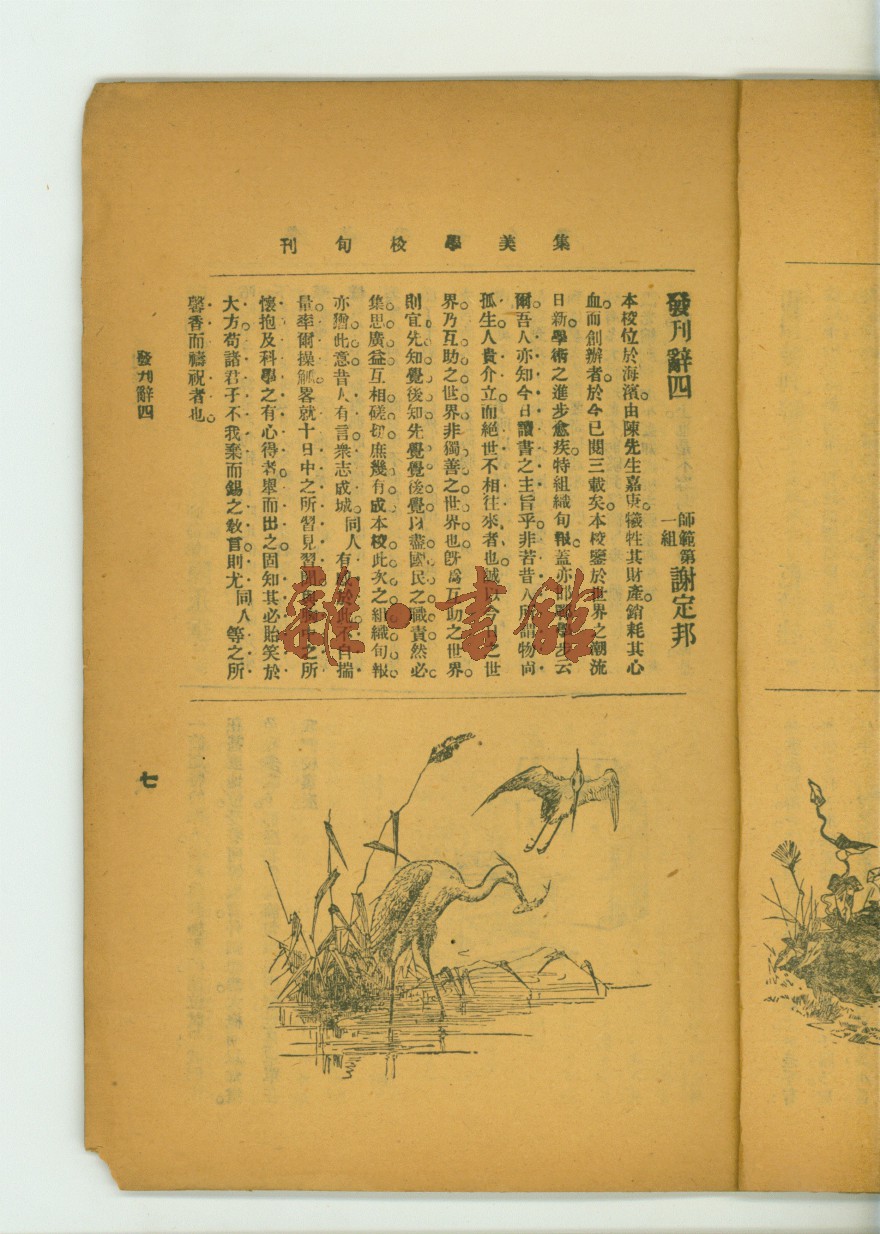 集美學校旬刊
發刊辭四
師範第一組 謝定邦
本校位於海濱由陳先生嘉庚犧牲其財產銷耗其心
血而創辦者於今已閱三載矣。本校鑒於世界之潮流
日新。學術之進步愈疾。特組織旬報。蓋亦邯鄲學步云
爾。吾人亦知今日讀書之主旨乎。非若昔人所謂物尚
孤生人貴介立而絕世不相往來者也。誠以今日之世
界乃互助之世界非獨善之世界也。旣爲互助之世界。
則宜先知覺後知先覺覺後覺。以盡國民之職責。然必
集思廣益。互相磋切。庶幾有成。本校此次之組織旬報
亦猶此意。昔人有言衆志成城。同人有感於此不自揣
量。率爾操觚。畧就十日中之所習見習聞與胸中之所
懷抱及科學之有心得者。舉而出之。固知其必貽笑於
大方。苟諸君子不我棄而錫之敎言。則尤同人等之所
馨香而禱祝者也。
發刊辭四
七
雜·書館